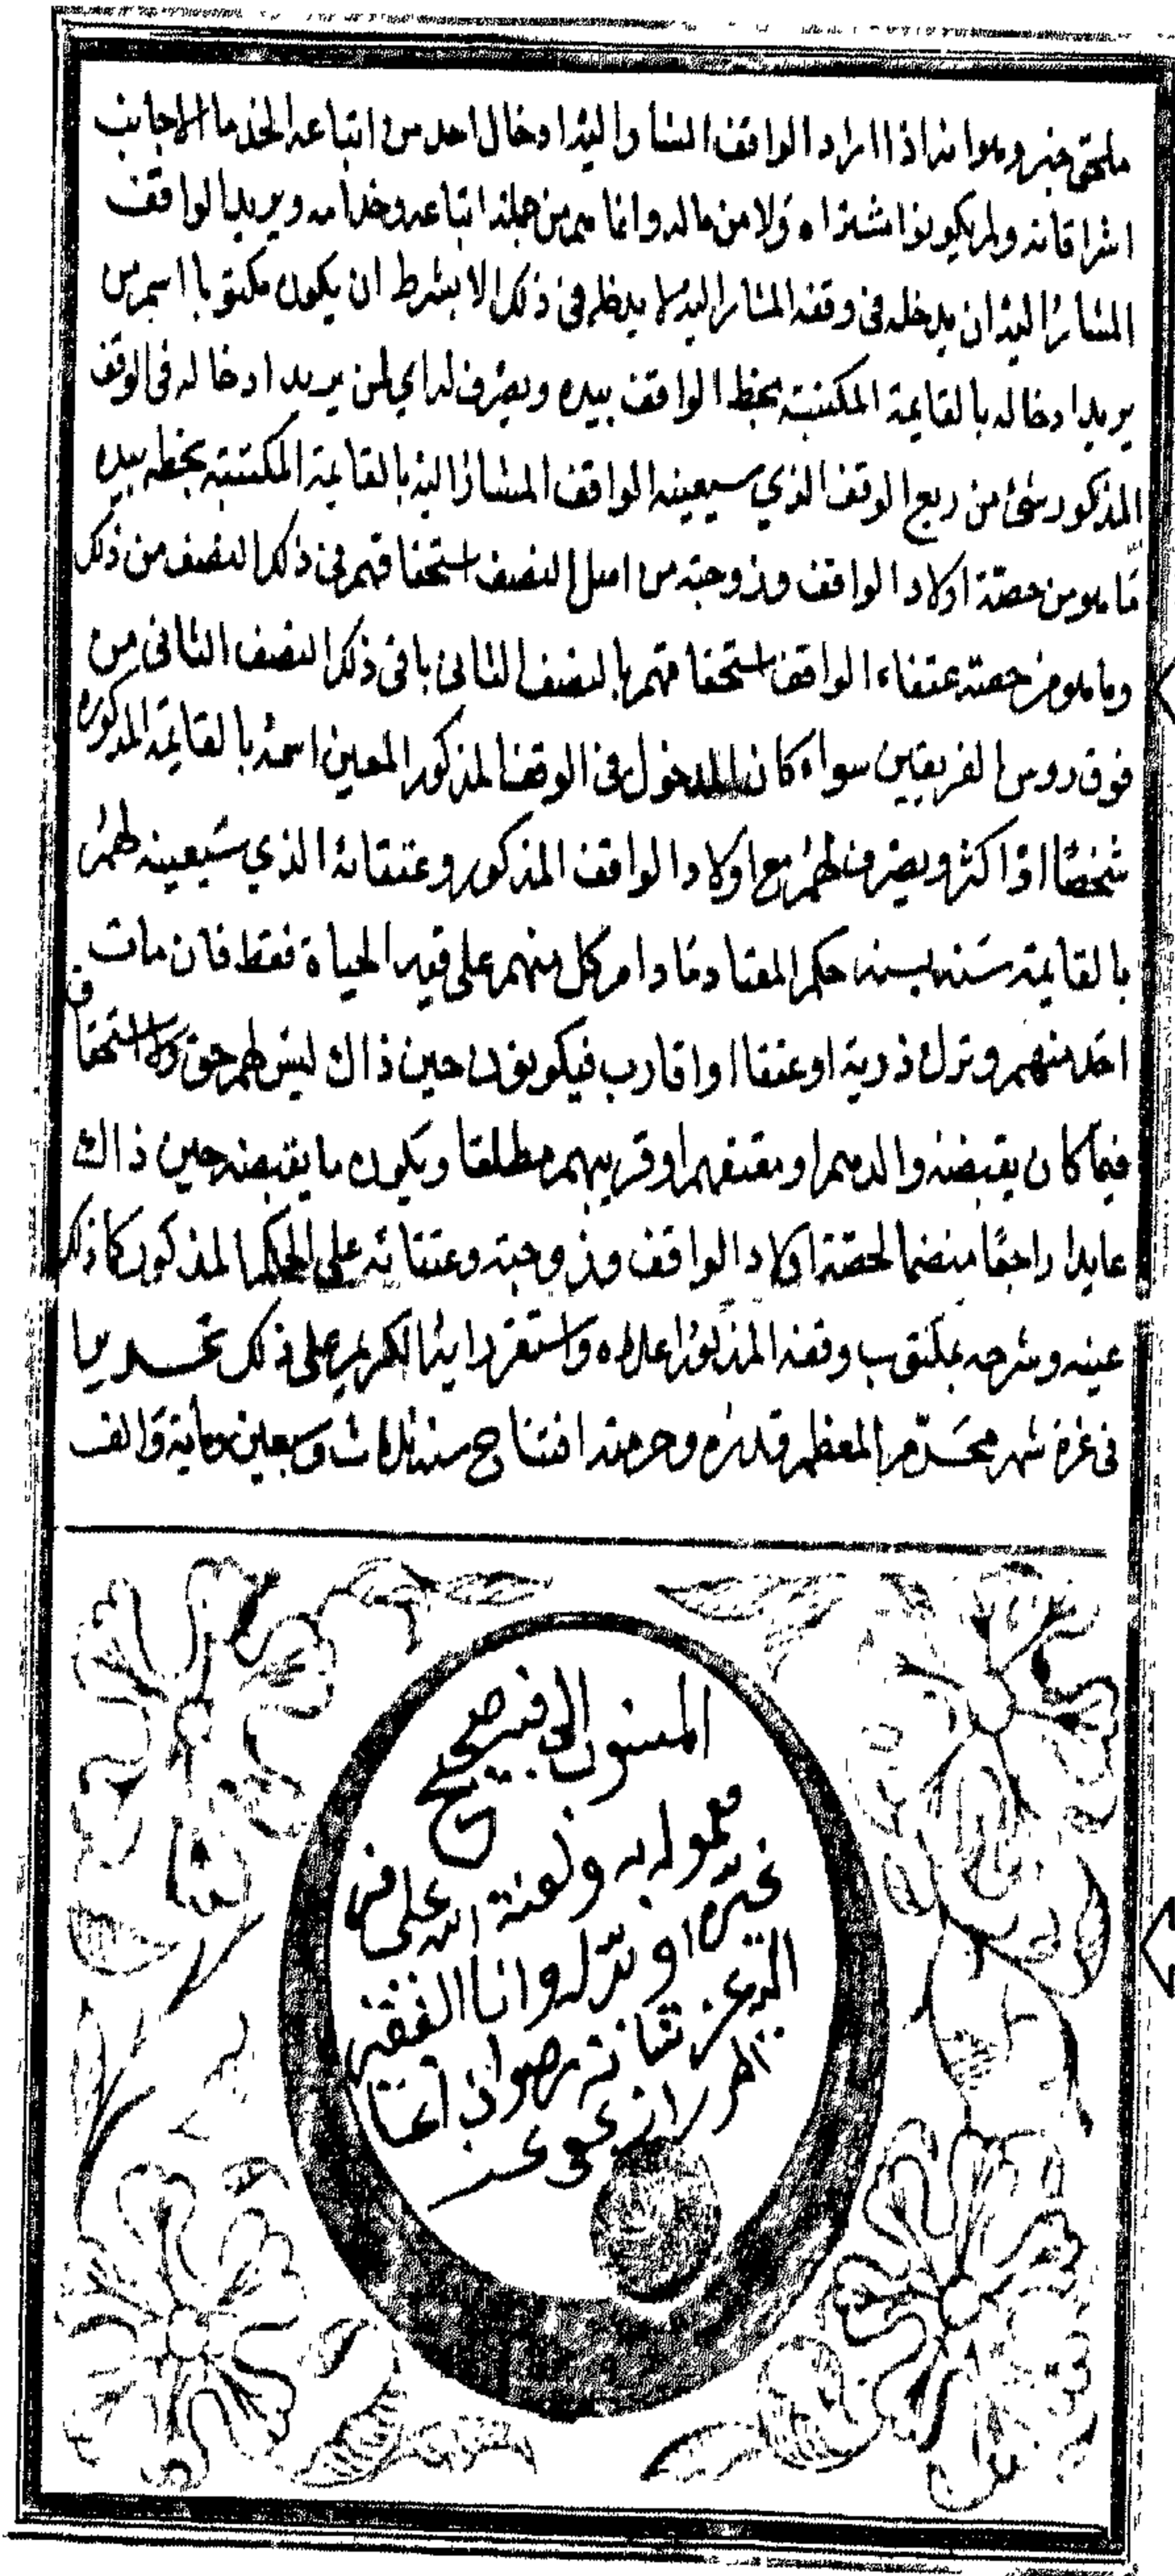 ملحق خير وهو انه اذا اراد الواقف المشار اليه ادخال احد من اتباعه الخدما الاجانب
اشراقاته ولم يكونوا مشتراه ولا من ماله وانما هم من جملة اتباعه وخدامه ويريد الواقف
المشار اليه ان يدخله في وقفه المشار اليه لا يدخل في ذلك الا بشرط ان يكون مكتوبا اسم من
يريد ادخاله بالقايمة المكتتبة بخط الواقف بيده ويصرف له اي لمن يريد ادخاله في الوقف
المذكور شئ من ريع الوقف الذي سيعينه الواقف المشار اليه بالقايمة المكتتبة بخطه بيده
ما هو من حصة اولاد الواقف وزوجته من اصل النصف استحقاقهم في ذلك النصف من ذلك
وما هو من حصة عتقاء الواقف استحقاقهم بالنصف الثاني باقي ذلك النصف الثاني من
فوق روس الفريقين سواء كان المدخول في الوقف المذكور المعين اسمه بالقايمة المذكوره
شخصا او اكثر ويصرف لهم مع اولاد الواقف المذكور وعتقائه الذي سيعينه لهم
بالقايمة سنه بسنه حكم المعتاد ما دام كل منهم على قيد الحياة فقط فان مات
احد منهم وترك ذرية او عتقا او اقارب فيكونون حين ذاك ليس لهم حق ولا استحقاق
فيما كان يقبضه والدهم او معتقهم او قريبهم مطلقا ويكون ما يقبضه حين ذاك
عايدا راجعا منضما لحصة اولاد الواقف وزوجته وعتقائه على الحكم المذكور كما ذلك
عينه وشرحه بمكتوب وقفه المذكور اعلاه واستقر راينا الكريم على ذلك تحريرا
في غرة شهر محرم المعظم قدره وحرمته افتتاح سنة ثلاث وسبعين وماية والف
المنسوب الي فيه صحيح
معمول به ولعنة الله على من
غيره او بدله وانا الفقير
اليه عز شانه رضوان اغا